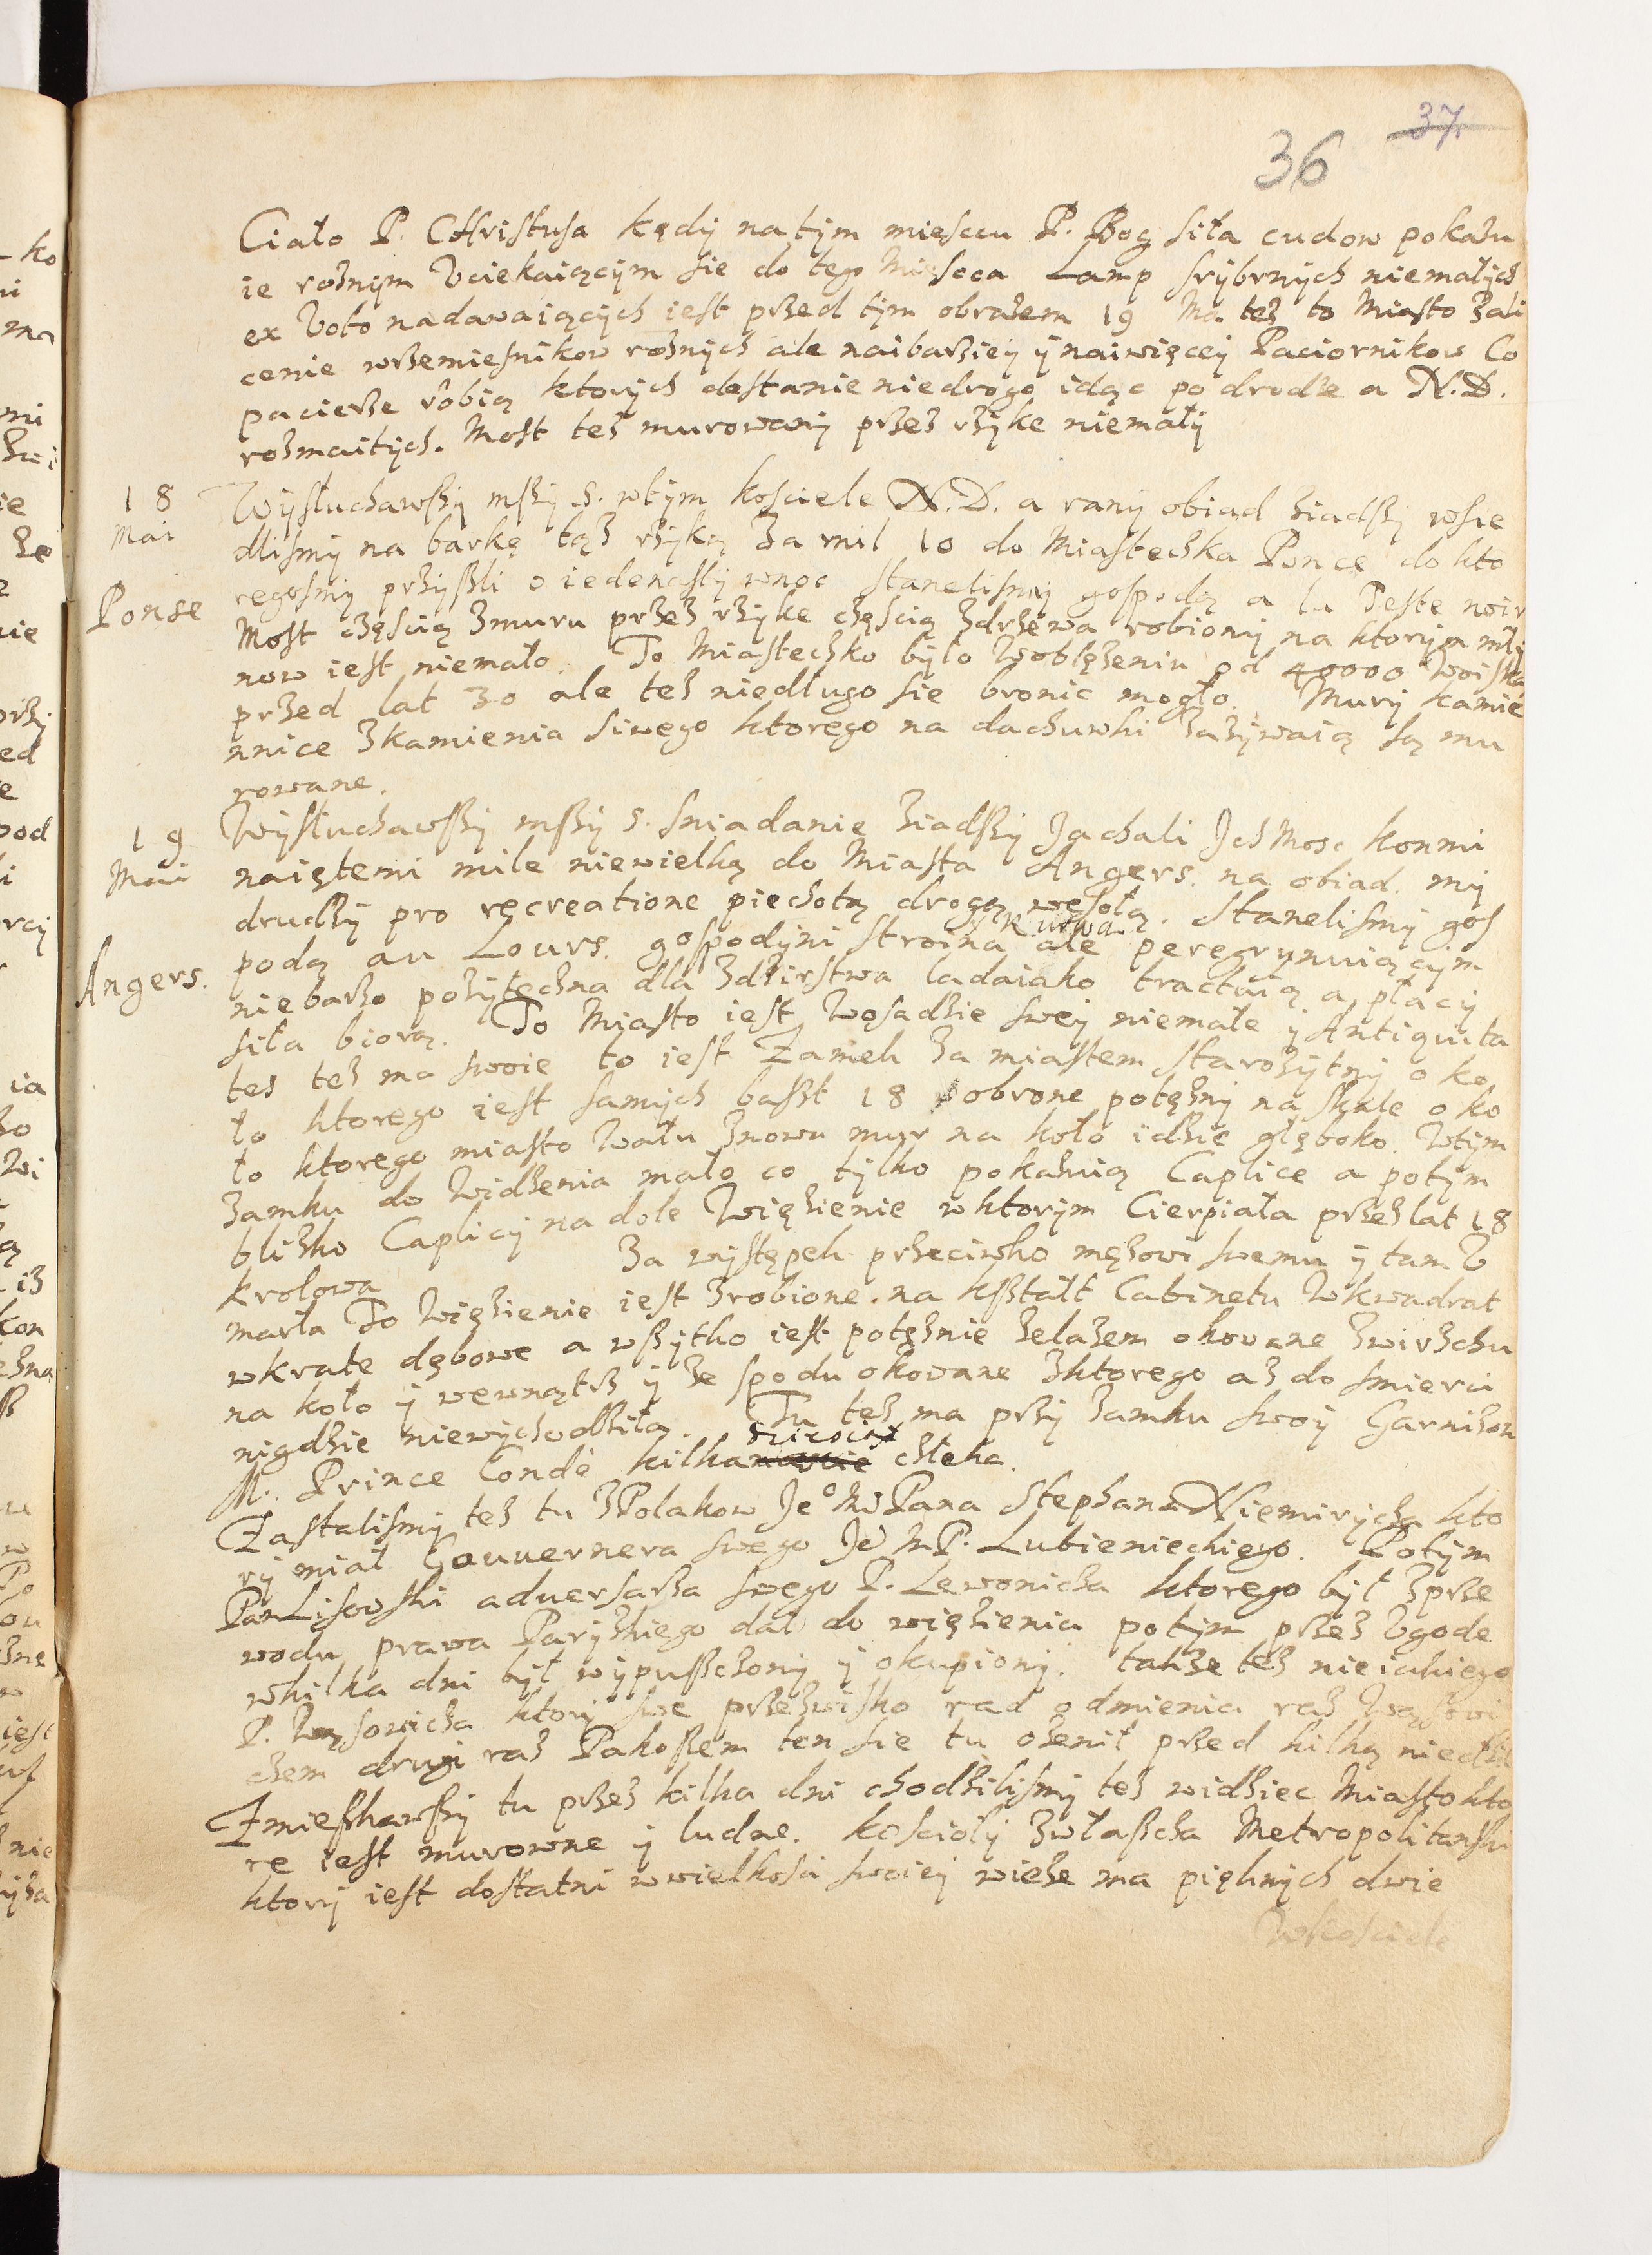 37.
36
Ciało P. CHristusa kędy na tym mieyscu P. Bog siła cudow pokazu
ie roznym Vciekaiącym sie do tego Miescca Lamp srybrnych niemałych
ex Voto nadawaiących iest przed tym obrazem 19 Ma tez to Miasto zali
cenie wrzemiesnikow roznych ale naibarziey y naiwięcey Paciornikow Co
pacierze robią ktorych dostanie niedrogo idąc po drodze a N.D.
rozmaitych. Most tez murowany przez rzyke niemały
18 Mai
Wysłuchawszy mszy S. w tym kosciele N.D. a rany obiad ziadszy wsie
dlismy na barkę tąz rzyką za mil 10 do Miasteczka Ponce do kto
regosmy przyszli o iedenasty w noc stanelismy gospodą a la Teste noir
Ponse
Most częscią z muru przez rzyke częscią z drzewa robiony na ktorym mły
now iest niemało. To Miasteczko było Woblęzeniu od 40000 Woiska
przed lat 30 ale tez niedługo sie bronic mogło. Mury kamie
nnice z kamienia siwego ktorego na dachuwki zazywaią są mu
rowane.
19 Mai
Wysłuchawszy mszy S. sniadanie ziadszy Jachali Jch Mosc konmi
naiętemi mile niewielką do Miasta Angers. na obiad. my
drudzy pro recreatione piechotą drogą wesołą. Stanelismy gos
Kurwa
podą au Lours. gospodyni stroina ale peregrynuiącym
Angers.
niebarzo pozyteczna dla zdzirstwa ladaiako tractuią a płacy
siła biorą. To Miasto iest Wosadzie swey niemałe y Antiquita
tes tez ma swoie to iest Zamek za miastem starozytny oko
ło ktorego iest samych baszt 18 obrone potęzny na skale oko
ło ktorego miasto Wału znowu mur na koło idzie głęboko. Wtym
zamku do Widzenia mało co tylko pokazuią Caplice a potym
blizko Caplicy na dole Więzienie w ktorym Cierpiała przez lat 18
krolowa za występek przeciwko męzowi swemu y tam V
marła To Więzienie iest zrobione. na kształt Cabinetu Wkwadrat
w krate dębowe a wszytko iest potęznie zelazem okowane zwirzchu
na koło y wewnątrz y ze spodu okowane z ktorego az do smierci
nigdzie niewychodziła. Tu tez ma przy zamku swoy Garnizon
M. Prince Condé kilkanascie człeka.
Zastalismy tez tu z Polakow Jeº Mẃ Pana Stephana Niemirycza kto
ry miał Gouvernera swego Jeº M P. Lubienieckiego. Potym
Pan Lisowski adversarza swego P. Lewonicza ktorego był z prze
wodu prawa Paryzkiego dał do więzienia potym przez Vgode
w kilka dni był wypuszczony y okupiony. takze tez nieiakiego
P. Wąsowicza ktory swe przezwisko rad odmienia raz Wąsowi
czem drugi raz Pakoszem ten sie tu ozenił przed kilką niedziel
Zmieszkawszy tu przez kilka dni chodzilismy tez widziec Miasto kto
re iest murowne y ludne. Koscioły zwłaszcza Metropolitanski
ktory iest dostatni w wielkosci swoiey wieze ma pięknych dwie
Wkosciele